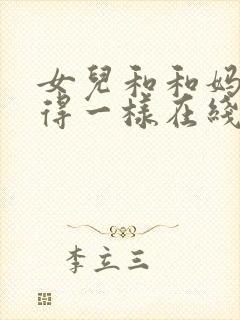 女兒和和妈
得一樣在綫
李立三